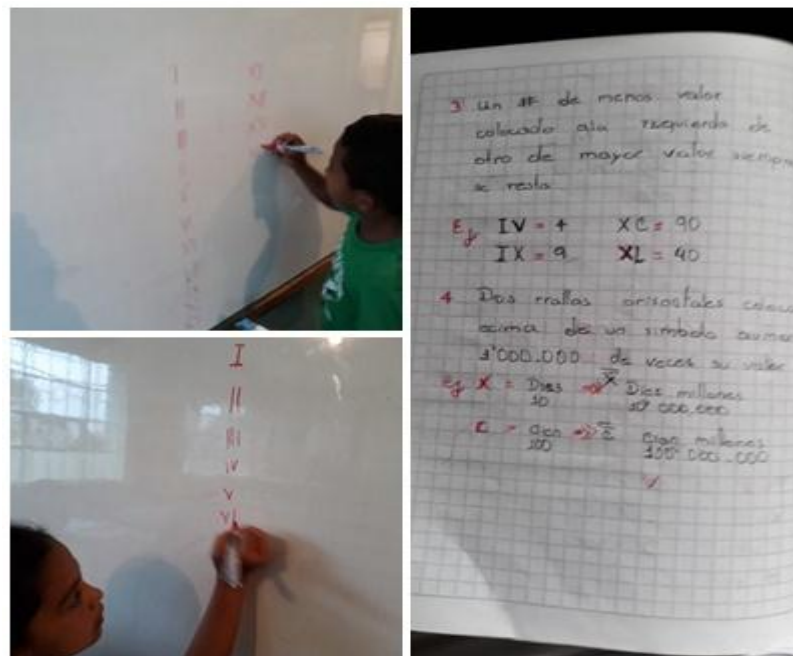 I
II
III
I
II
III
IV
V
VI
3 un # de menos valor
colocado ala izquierda de
otro de mayor valor siempre
se resta
Ej IV = 4 XC = 90
IX = 9 XL = 40
4 Dos rrallas orisostales coloca
ecima de un simbolo aumen
1'000.000 de veces su valor
Ej X = Dies ⇒ X Dies millones
10 10'000.000
C = cien ⇒ C cien millones
100 100'000.000